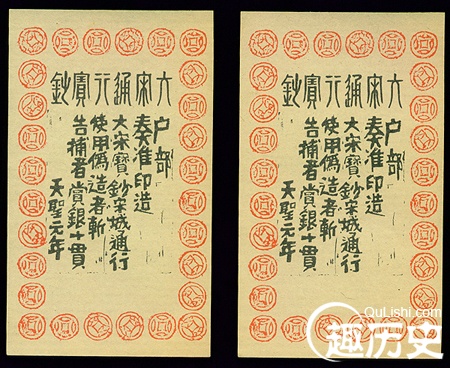 大宋通行寶鈔
户部
奏准印造
大宋寶鈔宋城通行
使用偽造者斬
告捕者賞銀十貫
天聖元年
大宋通行寶鈔
户部
奏准印造
大宋寶鈔宋城通行
使用偽造者斬
告捕者賞銀十貫
天聖元年
QuLishi.com
趣历史